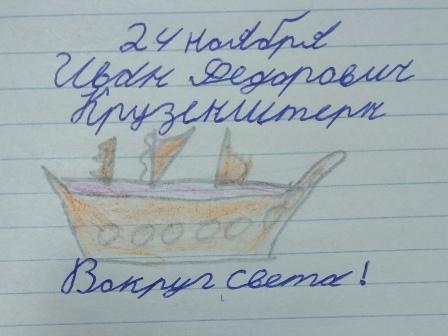 24 ноября
Иван Федорович
Крузенштерн
Вокруг света!